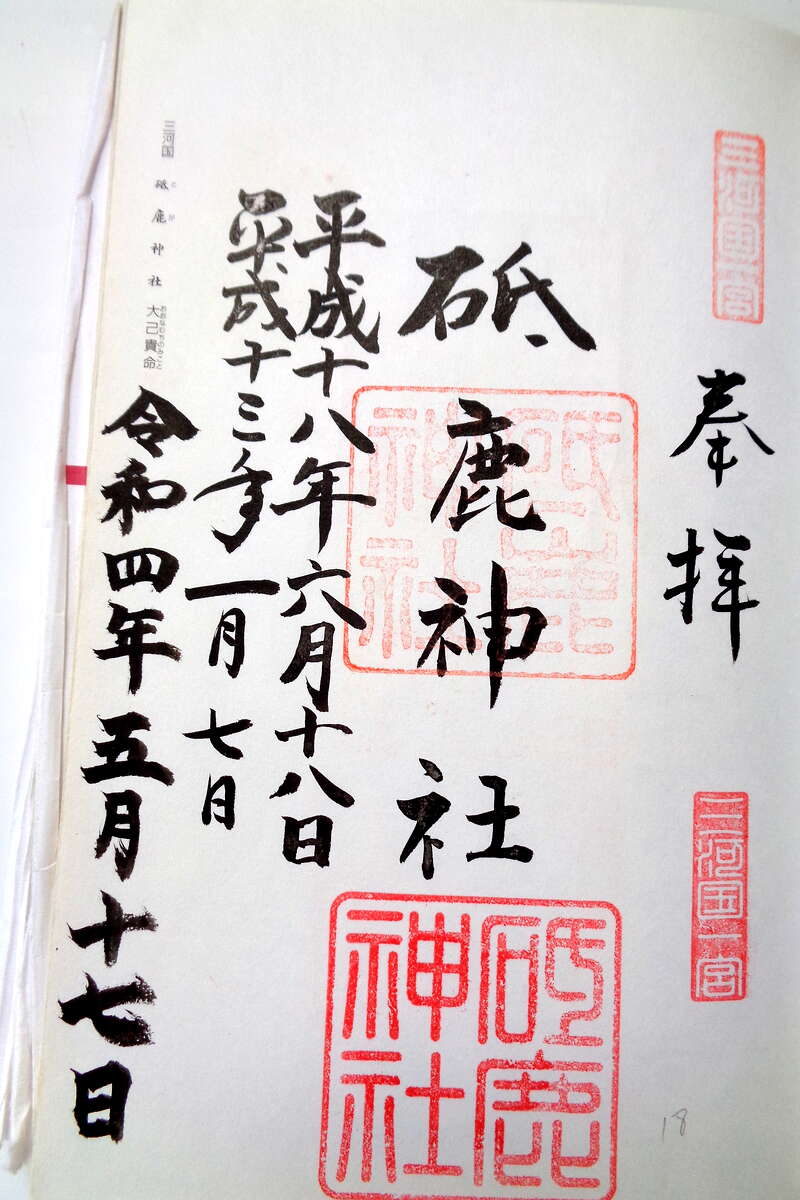 三河国一宮
奉拝
三河国一宮
18
砥鹿神社
砥鹿神社
砥鹿神社
平成十八年六月十八日
平成十三年一月七日
令和四年五月十七日
三河国 砥鹿神社 大己貴命
とが おおなむちのみこと